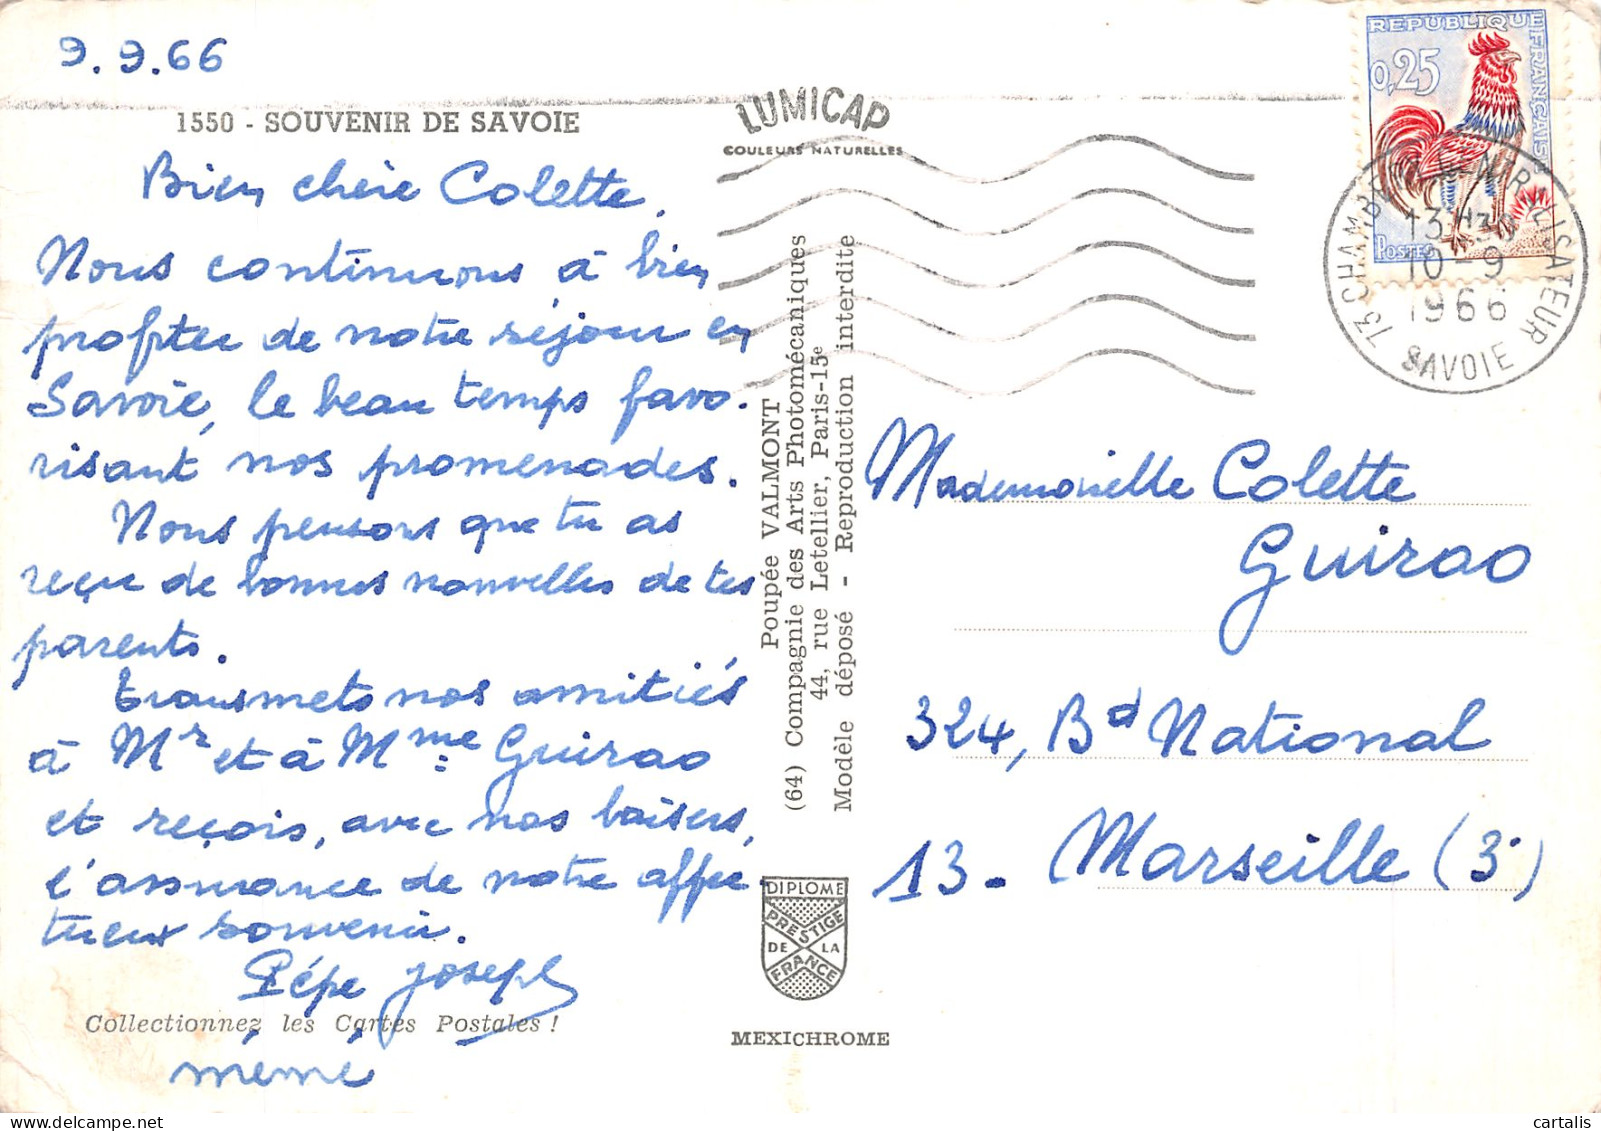 9.9.66
1550 - SOUVENIR DE SAVOIE
Bien chère Colette,
Nous continuons à bien
profiter de notre séjour en
Savoie, le beau temps favo-
risant nos promenades.
Nous pensons que tu as
reçu de bonnes nouvelles de tes
parents.
Transmets nos amitiés
à Mr et à Mme Guirao
et reçois, avec nos baisers,
l'assurance de notre affec-
tueux souvenir.
Pépé Joseph
Collectionnez les Cartes Postales !
mémé
LUMICAP
COULEURS NATURELLES
Poupée VALMONT
(64) Compagnie des Arts Photomécaniques
44, rue Letellier, Paris-15e
Modèle déposé - Reproduction interdite
DIPLOME
PRESTIGE
DE LA
FRANCE
MEXICHROME
REPUBLIQUE FRANÇAISE
0,25
POSTES
73 CHAMBERY
13H30
10-9
1966
SAVOIE
Mademoiselle Colette
Guirao
324, Bd National
13 - Marseille (3e)
cartalis
delcampe.net